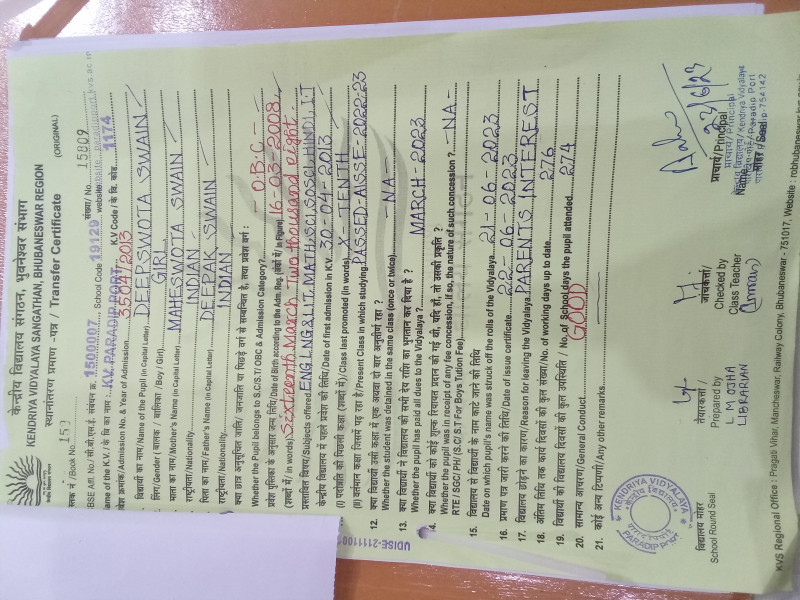 केन्द्रीय विद्यालय संगठन, भुवनेश्वर संभाग
KENDRIYA VIDYALAYA SANGATHAN, BHUBANESWAR REGION
स्थानांतरण प्रमाण -पत्र / Transfer Certificate
(ORIGINAL)
15809
/Book No. 153
संख्या / No.
CBSE Aff. No./ सी.बी.एस.ई. संबंधन क्र. 1500007 School Code 19129 website
Name of the K.V. / के वि का नाम : KV PARADIP PORT K.V Code / के वि. कोड 1174
Admission No. & Year of Admission. 3504/2013
विद्यार्थी का नाम/Name of the Pupil (in Capital Letter) DEEPSWOTA SWAIN
लिंग/Gender ( बालक / बालिका /Boy / Girl) GIRL
माता का नाम/Mother's Name (in Capital Letter) MAHESWOTA SWAIN
राष्ट्रीयता/Nationality INDIAN
पिता का नाम/Father's Name (in Capital Letter) DEEPAK SWAIN
राष्ट्रीयता/Nationality INDIAN
Whether the Pupil belongs to S.C/S.T/ OBC & Admission Category? O.B.C
Date of Birth according to the Adm. Reg. (अंकों में/ in Figure) 16-03-2008
(शब्दों में/ in words) Sixteenth March Two thousand eight
Subjects offered ENG LNG & LIT, MATH, SCI, SOSCI, HINDI, IT
केन्द्रीय विद्यालय में पहले प्रवेश की तिथि/Date of first admission in K.V. 30-04-2013
(I) Class last promoted (in words) X - TENTH
(II) वर्तमान कक्षा जिसमें पढ़ रहा है/Present Class in which studying PASSED-AISSE-2022-23
12. क्या विद्यार्थी उसी कक्षा में एक अथवा दो बार अनुत्तीर्ण रहा ?
Whether the student was detained in the same class (once or twice) -NA-
13. क्या विद्यार्थी ने विद्यालय को सभी देय राशि का भुगतान कर दिया है ?
Whether the pupil has paid all dues to the Vidyalaya ? MARCH-2023
14. क्या विद्यार्थी को कोई शुल्क रियायत प्रदान की गई थी, यदि हाँ, तो उसकी प्रकृति ?
Whether the pupil was in receipt of any fee concession, if so, the nature of such concession ?
RTE/ SGC/ PH/ (S.C/ S.T For Boys Tution Fee) -NA-
15. विद्यालय से विद्यार्थी के नाम काटे जाने की तिथि
Date on which pupil's name was struck off the rolls of the Vidyalaya. 21-06-2023
16. प्रमाण पत्र जारी करने की तिथि/Date of issue certificate 22-06-2023
17. विद्यालय छोड़ने का कारण/Reason for leaving the Vidyalaya PARENTS INTEREST
18. अंतिम तिथि तक कार्य दिवसों की कुल संख्या/No. of working days up to date. 276
19. विद्यार्थी की विद्यालय दिवसों की कुल उपस्थिति / No. of School days the pupil attended 274
20. सामान्य आचरण/General Conduct. GOOD
21. कोई अन्य टिप्पणी/Any other remarks.
UDISE-2111100
KENDRIYA VIDYALAYA
PARADIP PORT
विद्यालय मोहर
School Round Seal
Prepared by
L M OJHA
LIBRARIAN
जांचकर्ता/
Checked by
Class Teacher
23/6/23
प्राचार्य/Principal
Name
मोहर / Seal
प्राचार्य/Principal
Kendriya Vidyalaya
Paradip Port
754142
KVS Regional Office : Pragati Vihar, Mancheswar, Railway Colony, Bhubaneswar - 751017, Website : robhubaneswar.k